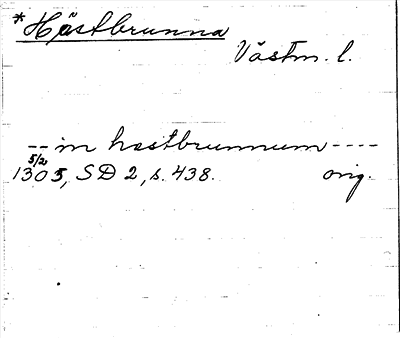 *Hästbrunna
Västm. l.
-- in hastbrunnum ----
5/2
1305, SD 2, s. 438. orig.